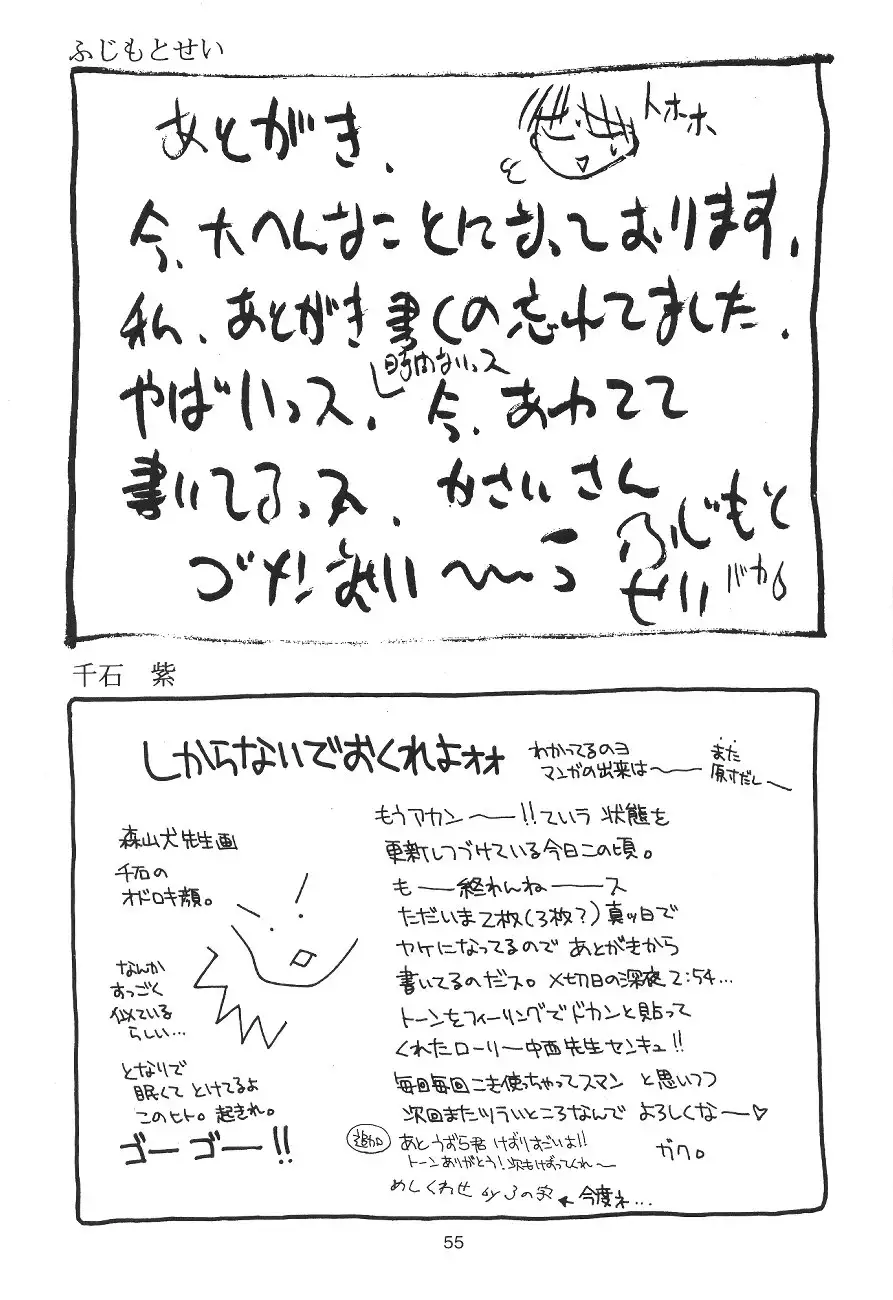 ふじもとせい
あとがき、
トホホ、
今、大へんなことになっております。
私、あとがき書くの忘れてました。
時間ないっス
やばいっス。今、あわてて
書いてるっス。かさいさん
ゴメンなさい〜〜っ
ふじもと
せい
バカ
千石 紫
しからないでおくれよォォ
わかってるのヨ
マンガの出来は〜――
また
原寸だし〜
森山犬先生画
千石の
オドロキ顔。
なんか
すっごく
似ている
らしい…
となりで
眠くて とけてるよ
このヒト。起きれ。
ゴーゴー!!
もうアカン〜―!!ていう 状態を
更新しつづけている今日この頃。
も――終れんね――ス
ただいま2枚(3枚?)真ッ白で
ヤケになってるので あとがきから
書いてるのだス。〆切日の深夜2:54…
トーンをフィーリングでドカンと貼って
くれたローリー中西先生センキュ!!
毎回毎回こき使っちゃってスマン と思いつつ
次回またツラいところなんで よろしくな〜♡
ガク。
追加
あと うずら君
トーンありがとう!次もけばってくれ〜
めしくわせ by
今度ネ…
55